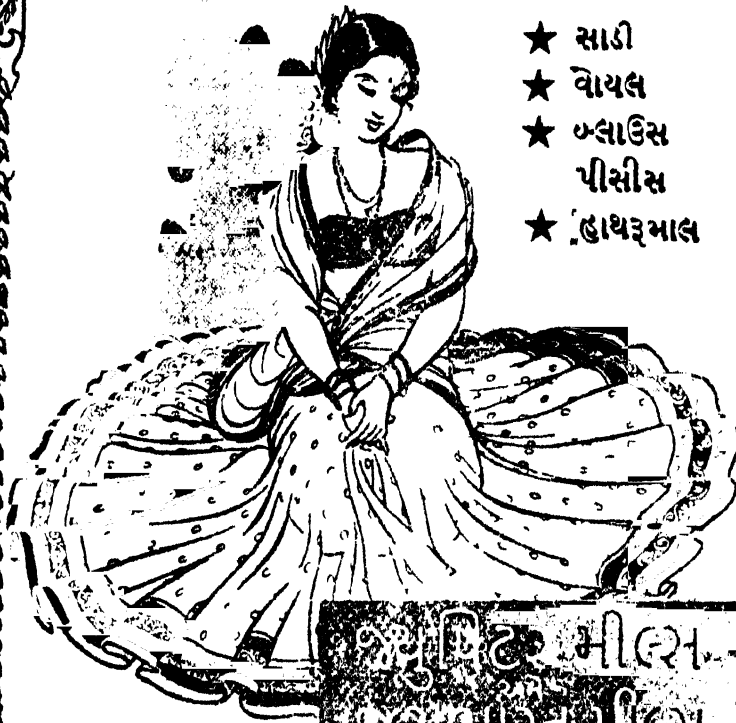 ★ સાડી
★ વોયલ
★ બ્લાઉસ
પીસીસ
★ હાથરૂમાલ
જ્યુપિટર મીલ્સ